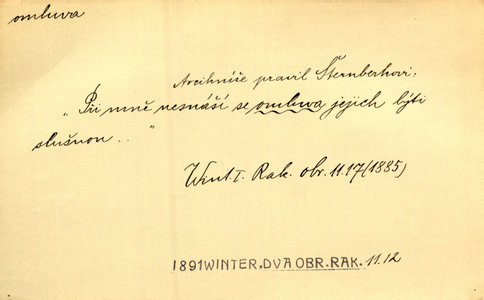 omluva
Arcikníže pravil Šternberkovi:
„Při mně nesnáší se omluva jejich býti
slušnou . . "
Wint. I. Rak. obr. 11.17 (1885)
1891 WINTER. DVA OBR. RAK. 11.12